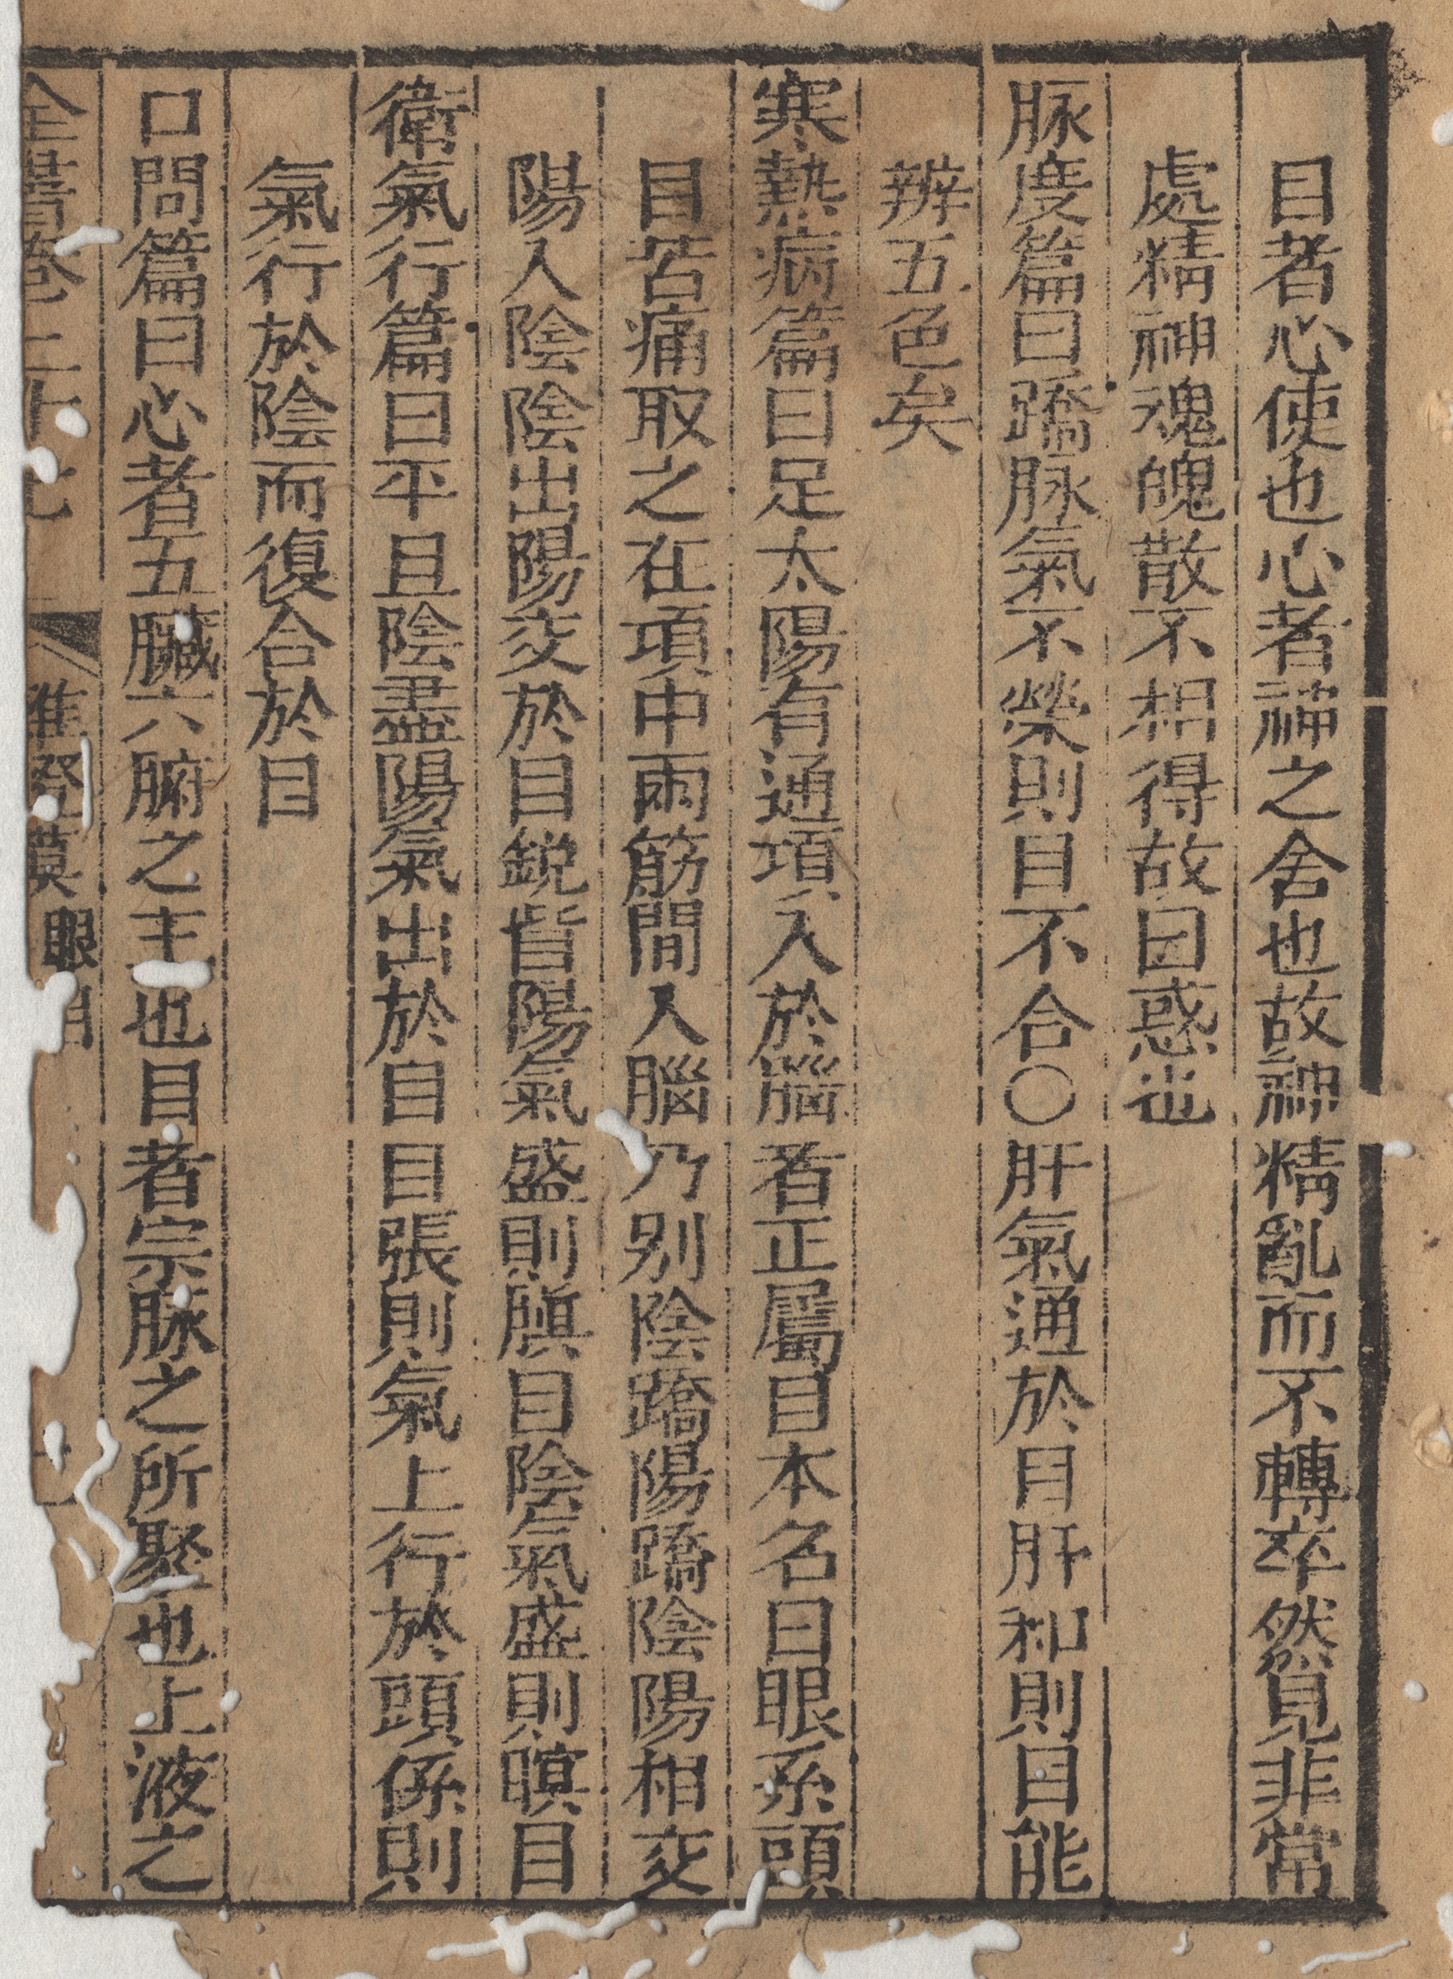 目者心使也心者神之舍也故神精亂而不轉卒然見非常
處精神魂魄散不相得故曰惑也
脉度篇曰蹻脉氣不榮則目不合〇肝氣通於目肝和則目能
辨五色矣
寒熱病篇曰足太陽有通項入於腦者正屬目本名曰眼系頭
目苦痛取之在項中兩筋間入腦乃别陰蹻陽蹻陰陽相交
陽入陰陰出陽交於目銳眥陽氣盛則瞋目陰氣盛則瞑目
衛氣行篇曰平旦陰盡陽氣出於目目張則氣上行於頭係則
氣行於陰而復合於目
口問篇曰心者五臟六腑之主也目者宗脉之所聚也上液之
全書卷之 眼目